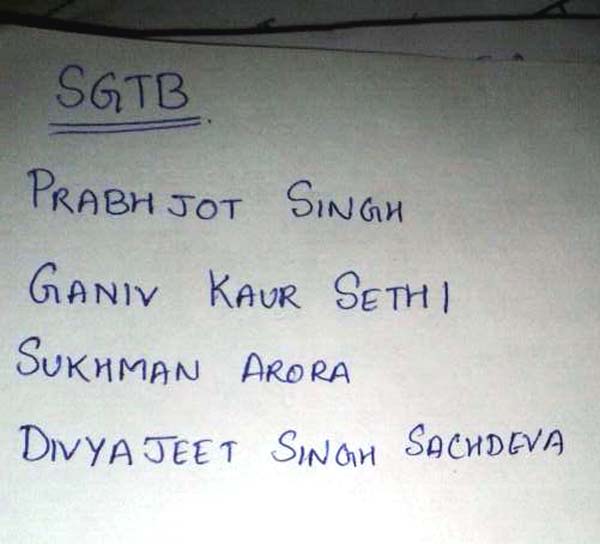 SGTB
PRABHJOT SINGH
GANIV KAUR SETHI
SUKHMAN ARORA
DIVYAJEET SINGH SACHDEVA